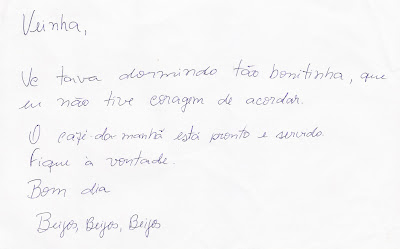 Veinha,
Vc tava dormindo tão bonitinha, que
eu não tive coragem de acordar.
O café-da-manhã está pronto e servido.
Fique à vontade.
Bom dia
Beijos, Beijos, Beijos